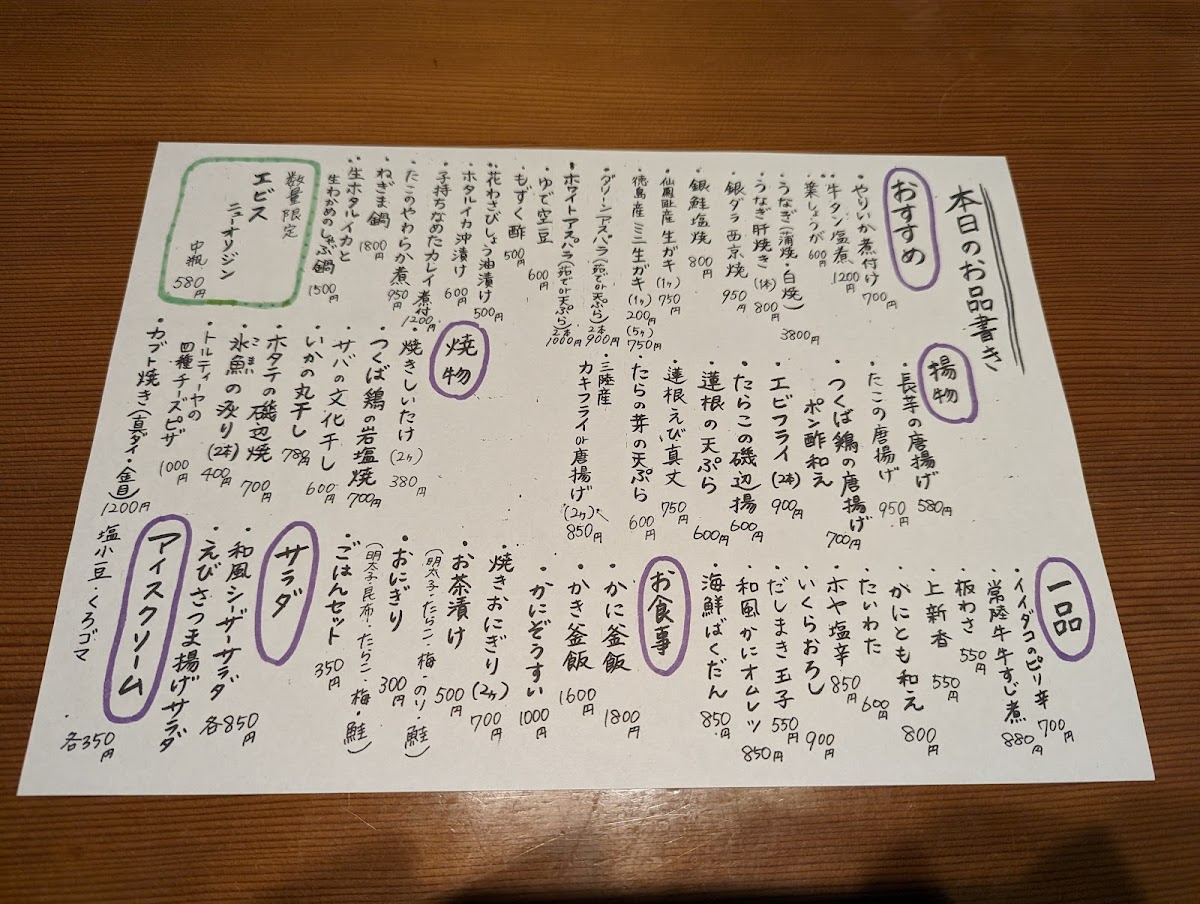 本日のお品書き
おすすめ
・やりいか煮付け 700円
・牛タン塩煮 1200円
・葉しょうが 600円
・うなぎ(蒲焼・白焼) 3800円
・うなぎ肝焼き(1本) 800円
・銀ダラ西京焼 950円
・銀鮭塩焼 800円
・仙鳳趾産 生ガキ(1ヶ) 750円
・徳島産 ミニ生ガキ(1ヶ) 200円 (5ヶ) 750円
・グリーンアスパラ(茹でor天ぷら) 2本 900円
・ホワイトアスパラ(茹でor天ぷら) 2本 1000円
・ゆで空豆 600円
・もずく酢 500円
・花わさびしょう油漬け 500円
・ホタルイカ沖漬け 600円
・子持ちなめたカレイ煮付 1200円
・たこのやわらか煮 950円
・ねぎま鍋 1800円
・生ホタルイカと
生わかめのしゃぶ鍋 1500円
数量限定
エビス
ニューオリジン
中瓶 580円
揚物
・長芋の唐揚げ 580円
・たこの唐揚げ 950円
・つくば鶏の唐揚げ
ポン酢和え 700円
・エビフライ(2本) 900円
・たらこの磯辺揚 600円
・蓮根の天ぷら 600円
・蓮根えび真丈 750円
・たらの芽の天ぷら 600円
・三陸産
カキフライor唐揚げ(2ヶ) 850円
焼物
・焼きしいたけ(2ヶ) 380円
・つくば鶏の岩塩焼 700円
・サバの文化干し 600円
・いかの丸干し 780円
・ホタテの磯辺焼 700円
・氷魚の炙り(2本) 400円
こまい
・トルティーヤの
四種チーズピザ 1000円
・カブト焼き(真ダイ・金目) 1200円
一品
・イイダコのピリ辛 700円
・常陸牛牛すじ煮 880円
・板わさ 550円
・上新香 550円
・かにとも和え 800円
・たいわた 600円
・ホヤ塩辛 850円
・いくらおろし 900円
・だしまき玉子 550円
・和風かにオムレツ 850円
・海鮮ばくだん 850円
お食事
・かに釜飯 1800円
・かき釜飯 1600円
・かにぞうすい 1000円
・焼きおにぎり(2ヶ) 700円
・お茶漬け 500円
(明太子・たらこ・梅・のり・鮭)
・おにぎり 300円
(明太子・昆布・たらこ・梅・鮭)
・ごはんセット 350円
サラダ
・和風シーザーサラダ
・えびさつま揚げサラダ 各850円
アイスクリーム
塩小豆・くろゴマ
各350円